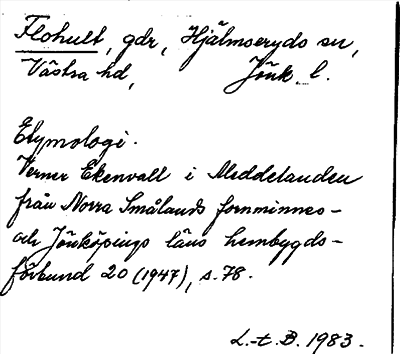 Flohult, gdr, Hjälmseryds sn,
Västra hd, Jönk. l.
Etymologi.
Verner Ekenvall i Meddelanden
från Norra Smålands fornminnes-
och Jönköpings läns hembygds-
förbund 20 (1947), s. 78.
L.-t. B. 1983.